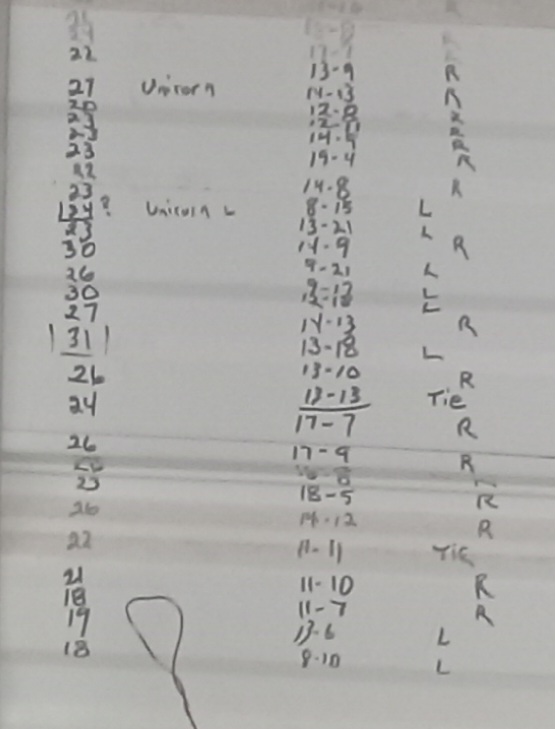 22 17-7
13-9 R
27 Unicorn 14-13 R
20 12-8 R
23
23 14-9 R
23 19-4 R
22
23 14-8 R
24? Unicorn L 8-15 L
23 13-21 L
30 14-9 R
26 9-21 L
30 9-17 L
27 L
14-13 R
31 13-18 L
26 13-10 R
24 13-13 Tie
17-7 R
26 17-9 R
23 18-5 R
26 14-12 R
22 11-11 Tie
21 11-10 R
18 11-7 R
19 13-6 L
18 8-10 L